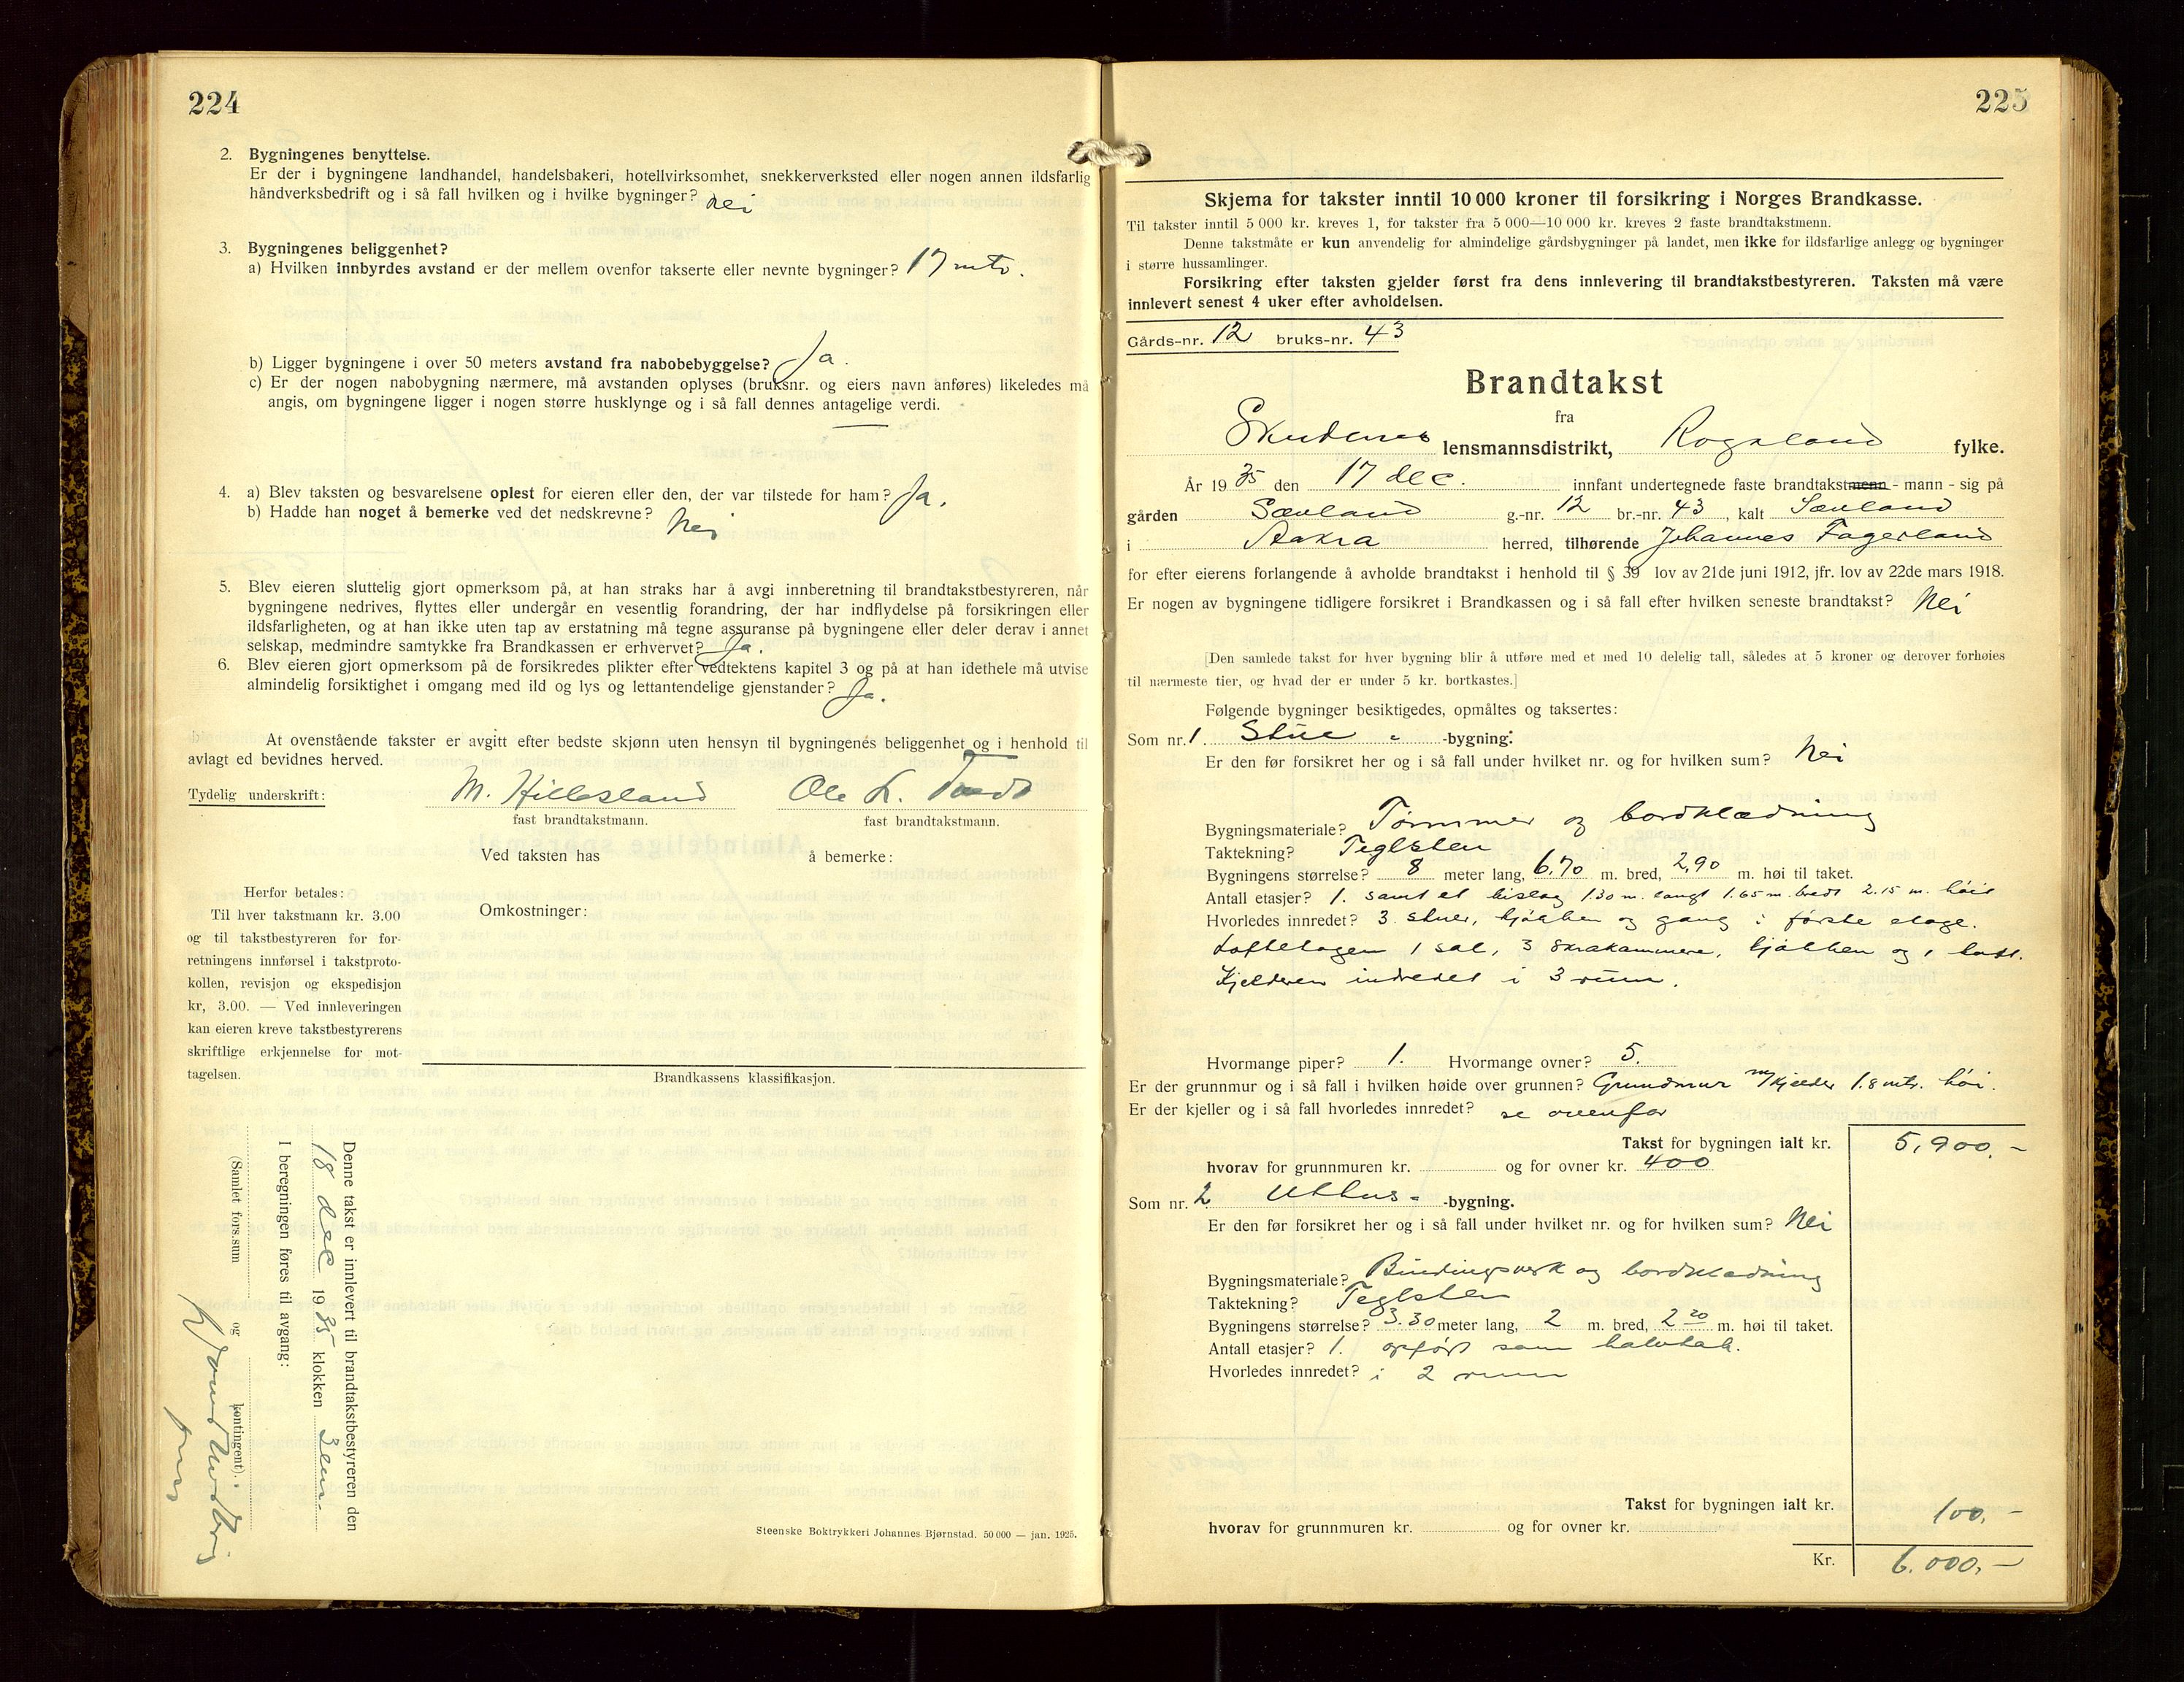 224
2. Bygningenes benyttelse.
Er der i bygningene landhandel, handelsbakeri, hotellvirksomhet, snekkerverksted eller nogen annen ildsfarlig
håndverksbedrift og i så fall hvilken og i hvilke bygninger? nei
3. Bygningenes beliggenhet?
a) Hvilken innbyrdes avstand er der mellem ovenfor takserte eller nevnte bygninger? 17 mtr.
b) Ligger bygningene i over 50 meters avstand fra nabobebyggelse? Ja.
c) Er der nogen nabobygning nærmere, må avstanden oplyses (bruksnr. og eiers navn anføres) likeledes må
angis, om bygningene ligger i nogen større husklynge og i så fall dennes antagelige verdi.
4. a) Blev taksten og besvarelsene oplest for eieren eller den, der var tilstede for ham? Ja.
b) Hadde han noget å bemerke ved det nedskrevne? Nei
5. Blev eieren sluttelig gjort opmerksom på, at han straks har å avgi innberetning til brandtakstbestyreren, når
bygningene nedrives, flyttes eller undergår en vesentlig forandring, der har indflydelse på forsikringen eller
ildsfarligheten, og at han ikke uten tap av erstatning må tegne assuranse på bygningene eller deler derav i annet
selskap, medmindre samtykke fra Brandkassen er erhvervet? Ja.
6. Blev eieren gjort opmerksom på de forsikredes plikter efter vedtektens kapitel 3 og på at han idethele må utvise
almindelig forsiktighet i omgang med ild og lys og lettantendelige gjenstander? Ja.
At ovenstående takster er avgitt efter bedste skjønn uten hensyn til bygningenes beliggenhet og i henhold til
avlagt ed bevidnes herved.
Tydelig underskrift: M. Hillesland Ole L.
fast brandtakstmann. fast brandtakstmann.
Ved taksten has å bemerke:
Herfor betales:
Til hver takstmann kr. 3.00
og til takstbestyreren for for-
retningens innførsel i takstproto-
kollen, revisjon og ekspedisjon
kr, 3.00. — Ved innleveringen
kan eieren kreve takstbestyrerens
skriftlige erkjennelse for mot-
tagelsen.
Omkostninger:
Brandkassens klassifikasjon.
Denne takst er innlevert til brandtakstbestyreren den
18 dec 1935 klokken
I beregningen føres til avgang:
(Samlet fors.sum og kontingent).
Steenske Boktrykkeri Johannes Bjørnstad. 50 000 — jan. 1925.
225
Skjema for takster inntil 10 000 kroner til forsikring i Norges Brandkasse.
Til takster inntil 5 000 kr. kreves 1, for takster fra 5 000—10 000 kr. kreves 2 faste brandtakstmenn.
Denne takstmåte er kun anvendelig for almindelige gårdsbygninger på landet, men ikke for ildsfarlige anlegg og bygninger
i større hussamlinger.
Forsikring efter taksten gjelder først fra dens innlevering til brandtakstbestyreren. Taksten må være
innlevert senest 4 uker efter avholdelsen.
Gårds-nr. 12 bruks-nr. 43
Brandtakst
fra
Skudenes lensmannsdistrikt, Rogaland fylke.
År 1935 den 17 dec. innfant undertegnede faste brandtakstmenn - mann - sig på
gården Sævland g.-nr. 12 br.-nr. 43, kalt Sævland
i Aakra herred, tilhørende Johannes Fagerland
for efter eierens forlangende å avholde brandtakst i henhold til § 39 lov av 21de juni 1912, jfr. lov av 22de mars 1918.
Er nogen av bygningene tidligere forsikret i Brandkassen og i så fall efter hvilken seneste brandtakst? Nei
[Den samlede takst for hver bygning blir å utføre med et med 10 delelig tall, således at 5 kroner og derover forhøies
til nærmeste tier, og hvad der er under 5 kr. bortkastes.]
Følgende bygninger besiktigedes, opmåltes og taksertes:
Som nr. 1. Stue -bygning:
Er den før forsikret her og i så fall under hvilket nr. og for hvilken sum? Nei
Bygningsmateriale? Tømmer og bordklædning
Taktekning? Teglsten
Bygningens størrelse? 8 meter lang, 6.70 m. bred, 2,90 m. høi til taket.
Antall etasjer? 1. samt et bislag 1.30 m. langt 1.65 m. bredt 2.15 m. høit
Hvorledes innredet? 3 stuer, kjøkken og gang i første etage.
Loftetagen 1 sal, 3 skraakammere, kjøkken og 1 loft.
Kjelderen indredet i 3 rum.
Hvormange piper? 1. Hvormange ovner? 5.
Er der grunnmur og i så fall i hvilken høide over grunnen? Grundmur m/kjelder 1.8 mtr. høi.
Er der kjeller og i så fall hvorledes innredet? se ovenfor
Takst for bygningen ialt kr. 5,900.-
hvorav for grunnmuren kr. og for ovner kr. 400
Som nr. 2. Uthus -bygning.
Er den før forsikret her og i så fall under hvilket nr. og for hvilken sum? Nei
Bygningsmateriale? Bindingsverk og bordklædning
Taktekning? Teglsten
Bygningens størrelse? 3.30 meter lang, 2 m. bred, 2 20 m. høi til taket.
Antall etasjer? 1. opført som halvtak.
Hvorledes innredet? i 2 rum
Takst for bygningen ialt kr. 100.-
hvorav for grunnmuren kr. og for ovner kr.
Kr. 6.000.-